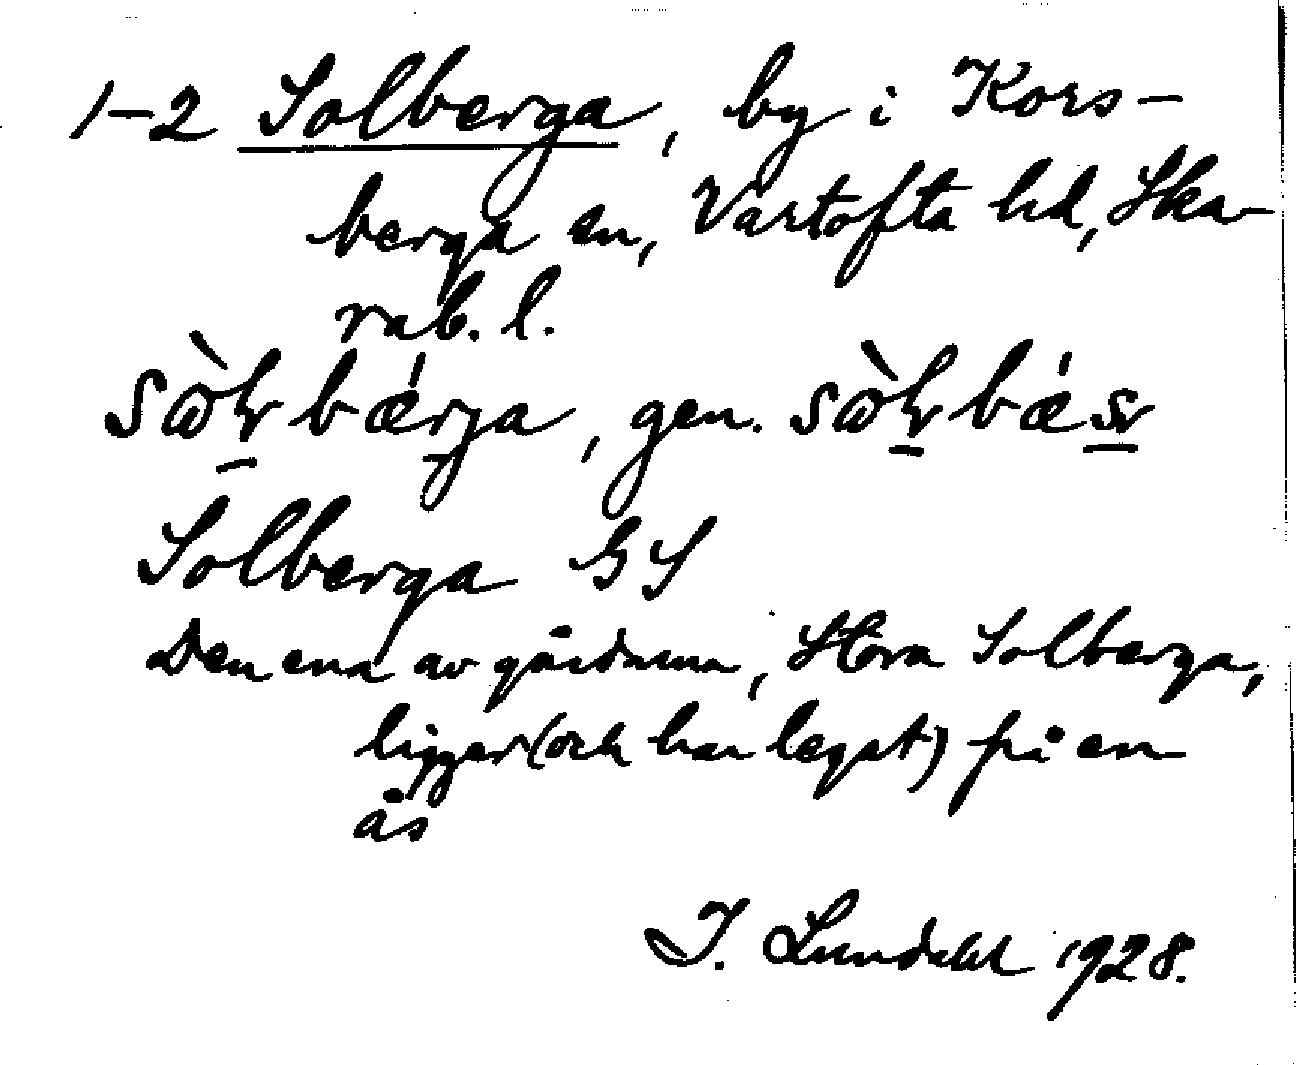 1-2 Solberga, by i Kors-
berga sn, Vartofta hd, Ska-
rab. l.
gen.
Solberga GS
Den ena av gårdarna, Stora Solberga,
ligger (och har legat) på en
ås
I. Lundahl 1928.